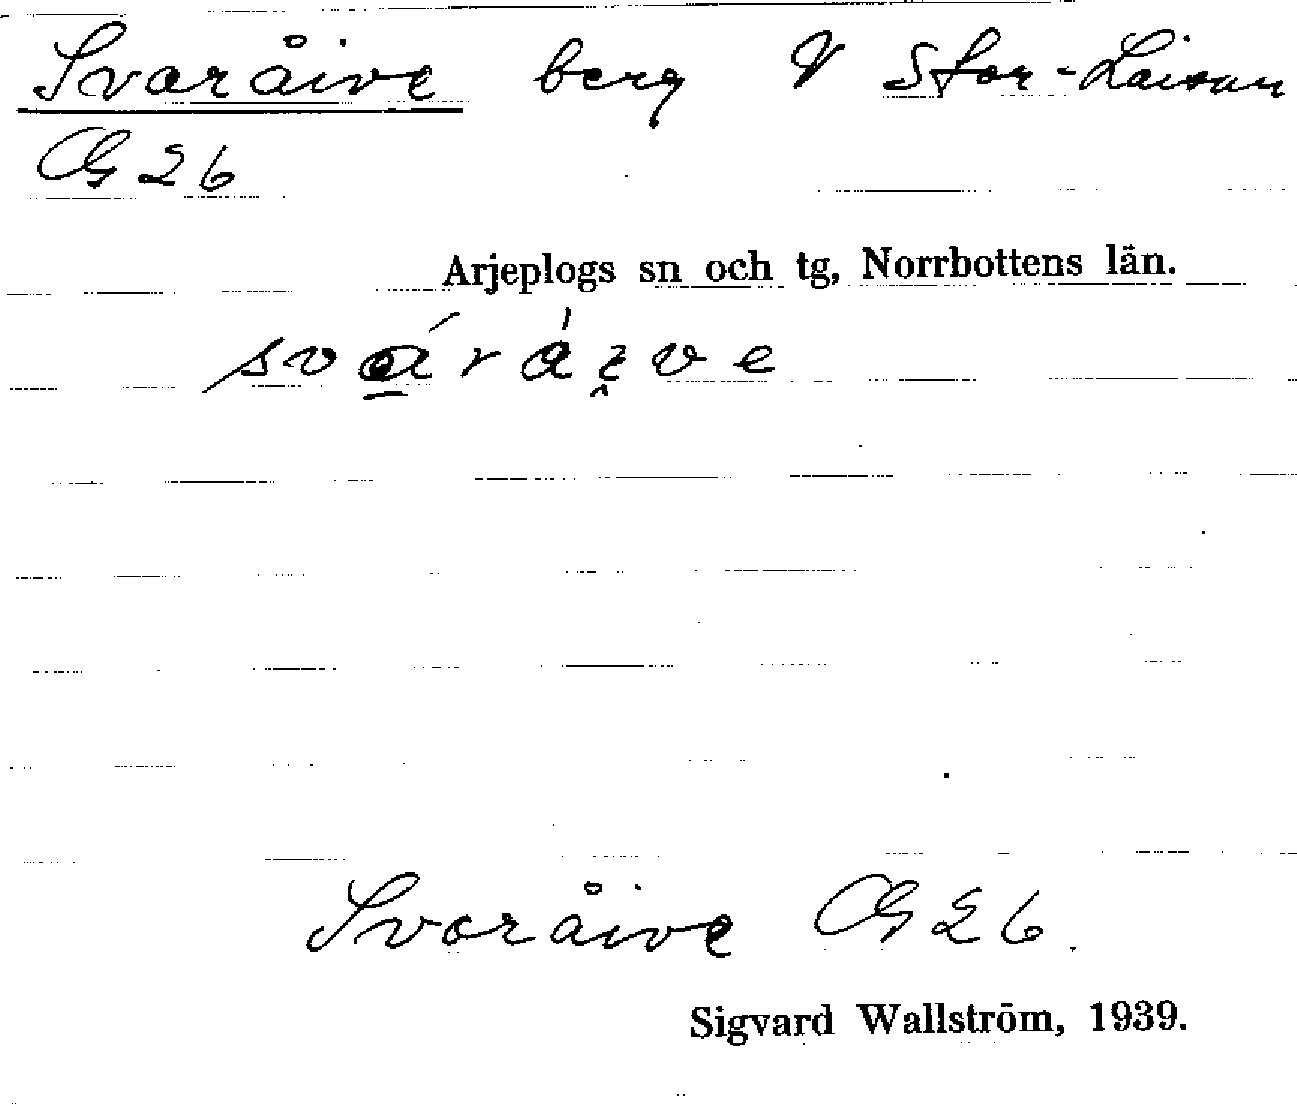 Svaråive berg V Stor-Laisan
CG 26
Arjeplogs sn och tg, Norrbottens län.
Svoråive CG 26.
Sigvard Wallström, 1939.